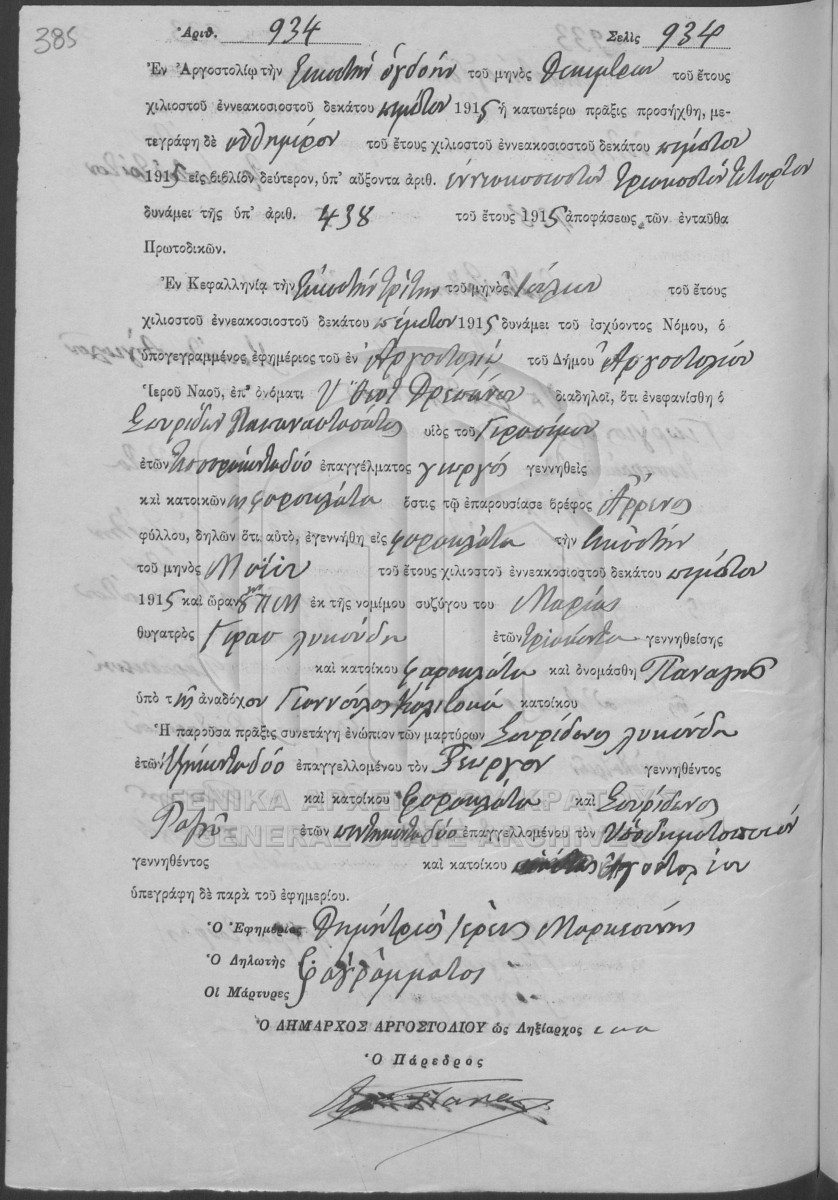 385
Ἀριθ. 934 Σελὶς 934
Ἐν Ἀργοστολίῳ τὴν εἰκοστὴν ὀγδόην τοῦ μηνὸς Δεκεμβρίου τοῦ ἔτους
χιλιοστοῦ ἐννεακοσιοστοῦ δεκάτου πέμπτου 1915 ἡ κατωτέρω πρᾶξις προσήχθη, με-
τεγράφη δὲ αὐθημερὸν τοῦ ἔτους χιλιοστοῦ ἐννεακοσιοστοῦ δεκάτου πέμπτου
1915 εἰς βιβλίον δεύτερον, ὑπ' αὔξοντα ἀριθ. ἐννεακοσιοστὸν τριακοστὸν τέταρτον
δυνάμει τῆς ὑπ' ἀριθ. 438 τοῦ ἔτους 1915 ἀποφάσεως τῶν ἐνταῦθα
Πρωτοδικῶν.
Ἐν Κεφαλληνίᾳ τὴν εἰκοστὴν τρίτην τοῦ μηνὸς Ἰουλίου τοῦ ἔτους
χιλιοστοῦ ἐννεακοσιοστοῦ δεκάτου πέμπτου 1915 δυνάμει τοῦ ἰσχύοντος Νόμου, ὁ
ὑπογεγραμμένος ἐφημέριος τοῦ ἐν Ἀργοστολίῳ τοῦ Δήμου Ἀργοστολίου
Ἱεροῦ Ναοῦ, ἐπ' ὀνόματι διαδηλοῖ, ὅτι ἐνεφανίσθη ὁ
Σπυρίδων Παπαναστασάτος υἱὸς τοῦ Γερασίμου
ἐτῶν τεσσαράκοντα δύο ἐπαγγέλματος γεωργὸς γεννηθεὶς
καὶ κατοικῶν εἰς Φαρακλάτα ὅστις τῷ ἐπαρουσίασε βρέφος ἄρρενος
φύλλου, δηλῶν ὅτι αὐτὸ, ἐγεννήθη εἰς Φαρακλάτα τὴν εἰκοστὴν
τοῦ μηνὸς Μαΐου τοῦ ἔτους χιλιοστοῦ ἐννεακοσιοστοῦ δεκάτου πέμπτου
1915 καὶ ὥραν 8 πμ ἐκ τῆς νομίμου συζύγου του Μαρίας
θυγατρὸς Γερασ Λυκούδη ἐτῶν τριάκοντα γεννηθείσης
καὶ κατοίκου Φαρακλάτα καὶ ὀνομάσθη Παναγῆς
ὑπὸ τῆς ἀναδόχου κατοίκου
Ἡ παροῦσα πρᾶξις συνετάγη ἐνώπιον τῶν μαρτύρων Σπυρίδωνος Λυκούδη
ἐτῶν ἑξήκοντα δύο ἐπαγγελλομένου τὸν γεωργὸν γεννηθέντος
καὶ κατοίκου Φαρακλάτα καὶ Σπυρίδωνος
ἐτῶν πεντήκοντα δύο ἐπαγγελλομένου τὸν ὑποδηματοποιὸν
γεννηθέντος καὶ κατοίκου Ἀργοστολίου
ὑπεγράφη δὲ παρὰ τοῦ ἐφημερίου.
Ὁ Ἐφημέριος Δημήτριος Ἱερεὺς
Ὁ Δηλωτὴς
ἀγράμματος
Οἱ Μάρτυρες
Ὁ ΔΗΜΑΡΧΟΣ ΑΡΓΟΣΤΟΛΙΟΥ ὡς Ληξίαρχος
Ὁ Πάρεδρος
ΓΕΝΙΚΑ ΑΡΧΕΙΑ ΤΟΥ ΚΡΑΤΟΥΣ
GENERAL STATE ARCHIVES